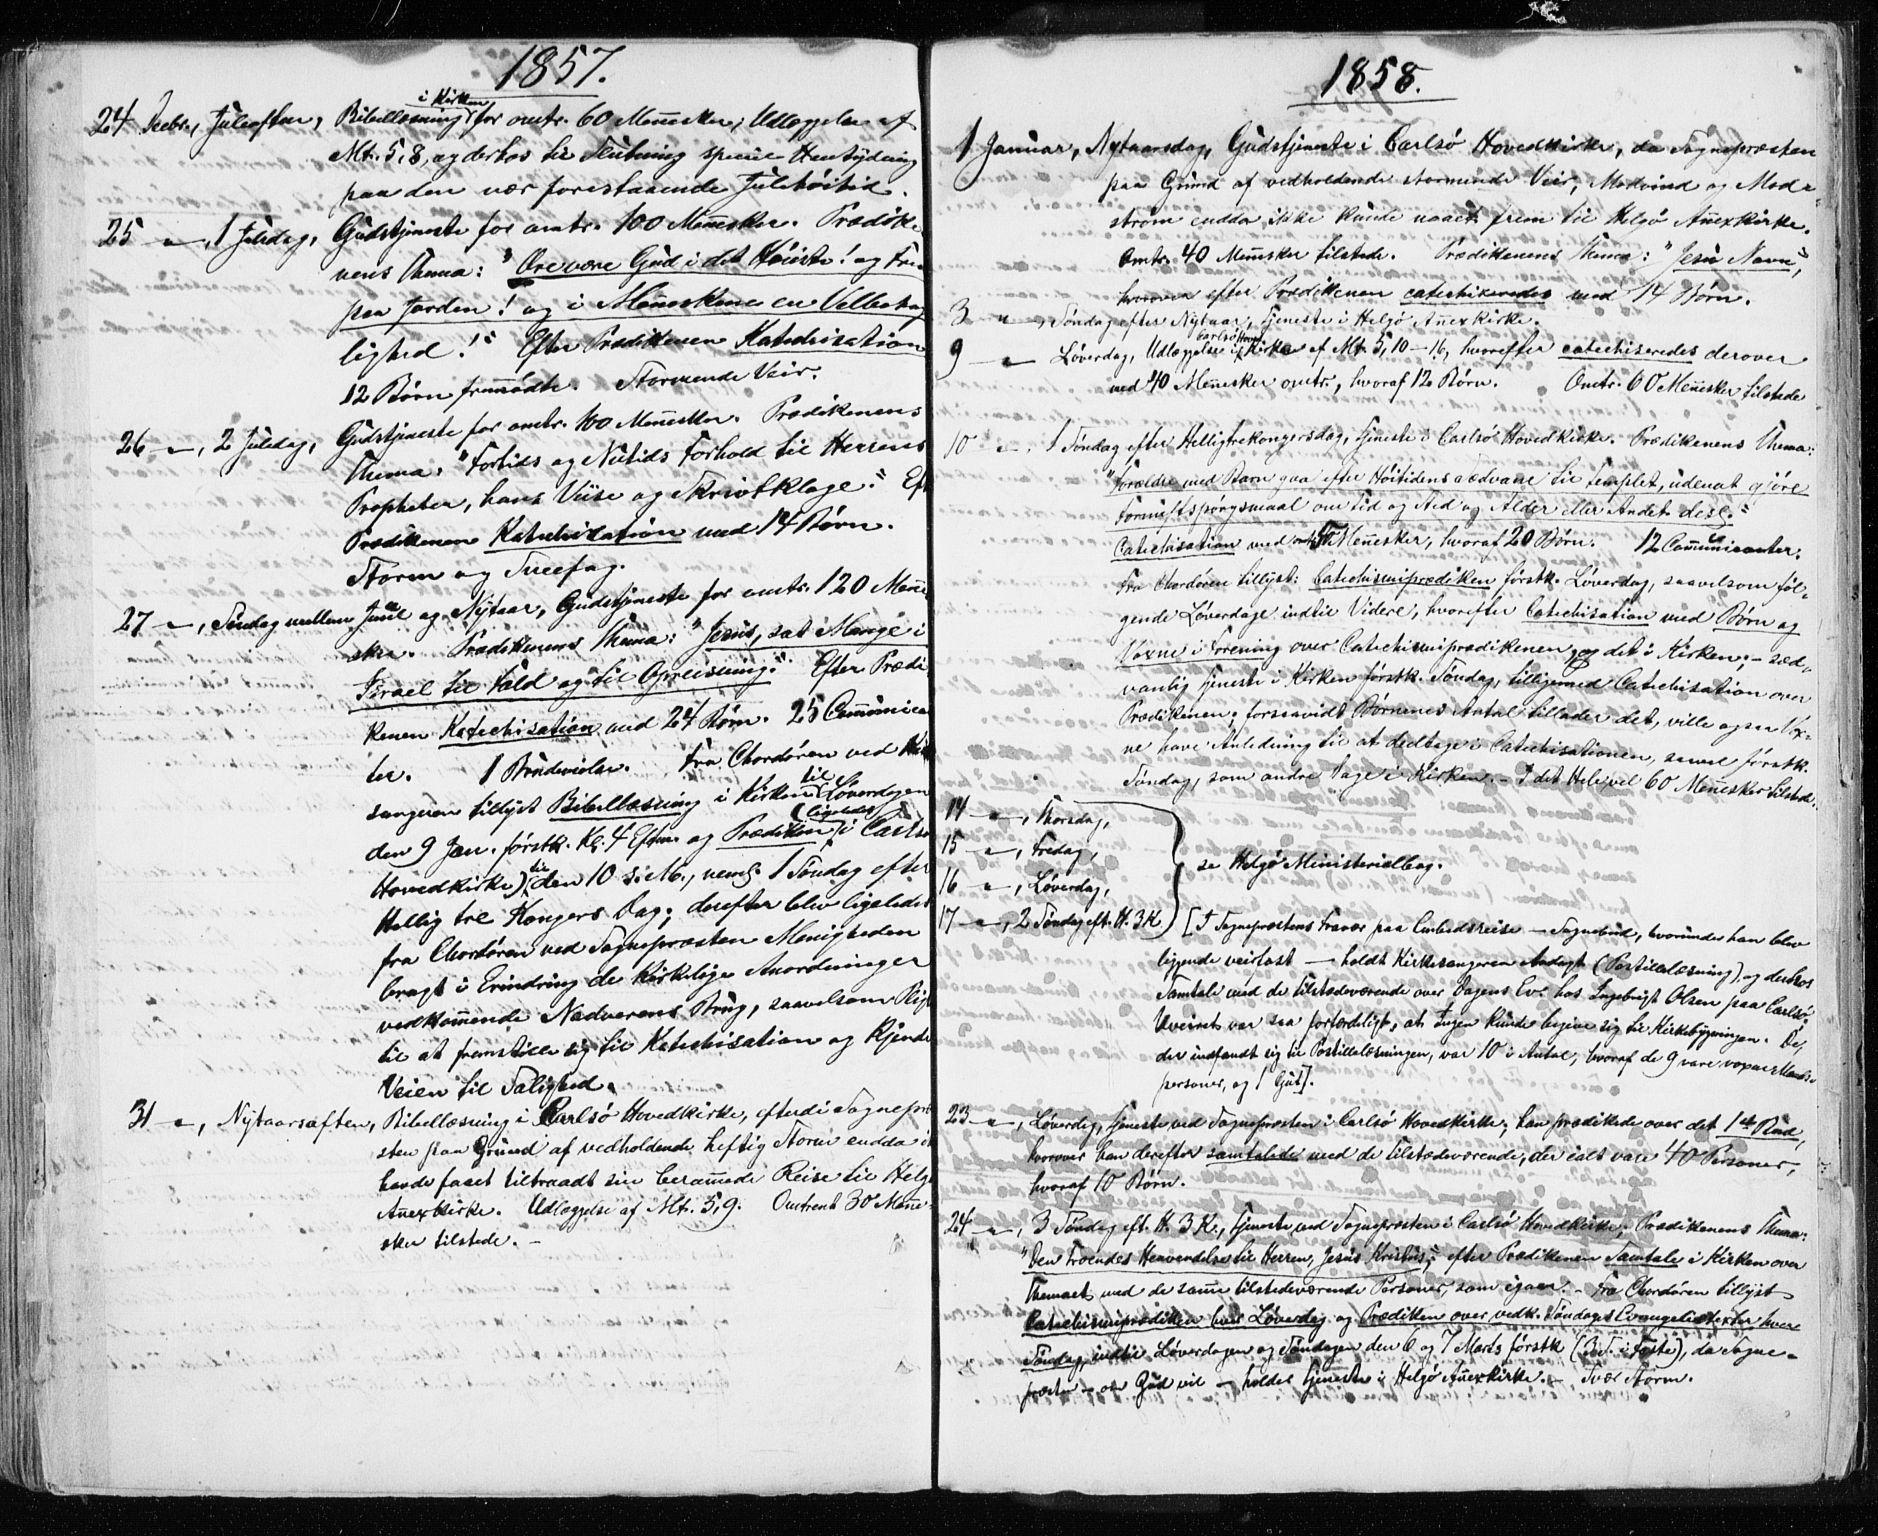 1857.
24 Decbr., Juleaften, Bibellæsning i Kirken for omtr. 60 Mennesker; Udlæggelse af
Mt. 5,8, og derhos til Slutning speciel Hentydning
paa den nær forestaaende Julehöitid.
25 " , 1 Juledag, Gudstjeneste for omtr. 100 Mennesker. Prædike-
nens Thema: "Ære være Gud i det Höieste! og Fred
paa Jorden! og i Menneskene en Velbehag-
lighed!" Efter Prædikenen Katechisation
12 Börn fremmödte. Stormende Veir.
26 " , 2 Juledag, Gudstjeneste for omtr. 100 Mennesker. Prædikenens
Thema: "Fortids og Nutids Forhold til Herrens
Propheter, hans Viise og Skriftkloge." Eft
Prædikenen Katechisation med 14 Börn.
Storm og Sneefog.
27 " , Söndag mellem Juul og Nytaar, Gudstjeneste for omtr. 120 Menne
sker. Prædikenens Thema: "Jesus, sat Mange i
Israel til Fald og til Opreisning." Efter Prædi
kenen Katechisation med 24 Börn. 25 Communican
ter. 1 Brudevielse. Fra Chordören ved Kirke
sangeren tillyst Bibellæsning i Kirken til Löverdagen
den 9 Jan. förstk. Kl. 4 Eftm. og Prædiken (ligeledes i Carlsö
Hovedkirke) til den 10 s. M., neml. 1 Söndag efter
Hellig tre Kongers Dag; derefter blev ligeledes
fra Chordören ved Sognepræsten Menigheden
bragt i Erindring de kirkelige Anordninger
vedkommende Nadverens Brug, saavelsom Pligt
til at fremstille sig til Katechisation og Kjende
Veien til Salighed.
31 " , Nytaarsaften, Bibellæsning i Carlsö Hovedkirke, efterdi Sognepræ
sten paa Grund af vedholdende heftig Storm endda ik
havde faaet tiltraadt sin berammede Reise til Helgö
Annexkirke. Udlæggelse af Mt. 5,9. Omtrent 30 Menne-
sker tilstede. –
1858.
1 Januar, Nytaarsdag, Gudstjeneste i Carlsö Hovedkirke, da Sognepræsten
paa Grund af vedholdende stormende Veir, Modvind og Mod-
ström endda ikke kunde naaet frem til Helgö Annexkirke.
Omtr. 40 Mennesker tilstede. Prædikenens Thema: "Jesu Navn",
hvorover efter Prædikenen catechiseredes med 14 Börn.
3 " , Söndag efter Nytaar, Tjeneste i Helgö Annexkirke.
9 " Löverdag, Udlæggelse i Carlsö Hoved Kirke af Mt. 5,10–16, hvorefter catechiseredes derover
med 40 Mennesker omtr., hvoraf 12 Börn. Omtr. 60 Mennesker tilstede
10 " , 1 Söndag efter Helligtrekongersdag, Tjeneste i Carlsö Hovedkirke. Prædikenens Thema:
"Forældre med Barn gaa efter Höitidens Sædvane til Templet, udenat gjöre
Fornuftspörgsmaal om Tid og Sted og Alder eller Andet desl."
Catechisation med omtr. Mennesker, hvoraf 20 Börn. 12 Communicanter.
Fra Chordören tillyst: Catechismiprædiken förstk. Löverdag, saavelsom föl-
gende Löverdage indtil Videre, hvorefter Catechisation med Börn og
Voxne i Forening over Catechismiprædikenen, og det i Kirken; – sæd-
vanlig Tjeneste i Kirken förstk. Söndag, tilligemed Catechisation over
Prædikenen; forsaavidt Börnenes Antal tillader det, ville ogsaa Vox-
ne have Anledning til at deeltage i Catechisationen, saavel förstk.
Söndag, som andre Dage i Kirken. – I det Hele vel 60 Mennesker tilstede.
14 " , Thorsdag,
15 " , Fredag,
16 " , Löverdag,
se Helgö Ministerialbog.
17 " , 2 Söndag eft. H. 3 K. [I Sognepræstens Fravær paa Embedsreise – Sognebud, hvorunder han blev
liggende veirfast – holdt Kirkesangeren Andagt (Postillelæsning), og derhos
Samtale med de Tilstedeværende over Dagens Ev. hos Ingebrigt Olsen paa Carlsö.
Uveiret var saa forfærdeligt, at Ingen kunde begive sig til Kirkebygningen. De,
der indfandt sig til Postillelæsningen, var 10 i Antal, hvoraf de 9 vare voxne Mands-
personer, og 1 Gut].
23 " , Löverdag, Tjeneste ved Sognepræsten i Carlsö Hovedkirke; han prædikede over det 1ste Bud,
hvorover han derefter samtalede med de Tilstedeværende, der ialt vare 40 Personer,
hvoraf 10 Börn.
24 " , 3 Söndag eft. H. 3 K., Tjeneste ved Sognepræsten i Carlsö Hovedkirke; Prædikenens Thema:
"Den Troendes Henvendelse til Herren, Jesus Kristus;" efter Prædikenen Samtale i Kirken over
Themaet med de samme tilstedeværende Personer, som igaar. – Fra Chordören tillyst
Catechismiprædiken hver Löverdag og Prædiken over vedk. Söndages Evangelietexter hver
Söndag, indtil Löverdagen og Söndagen den 6 og 7 Marts förstk. (3 S. i Faste), da Sogne-
præsten – om Gud vil – holder Tjeneste i Helgö Annexkirke. – Svær Storm.